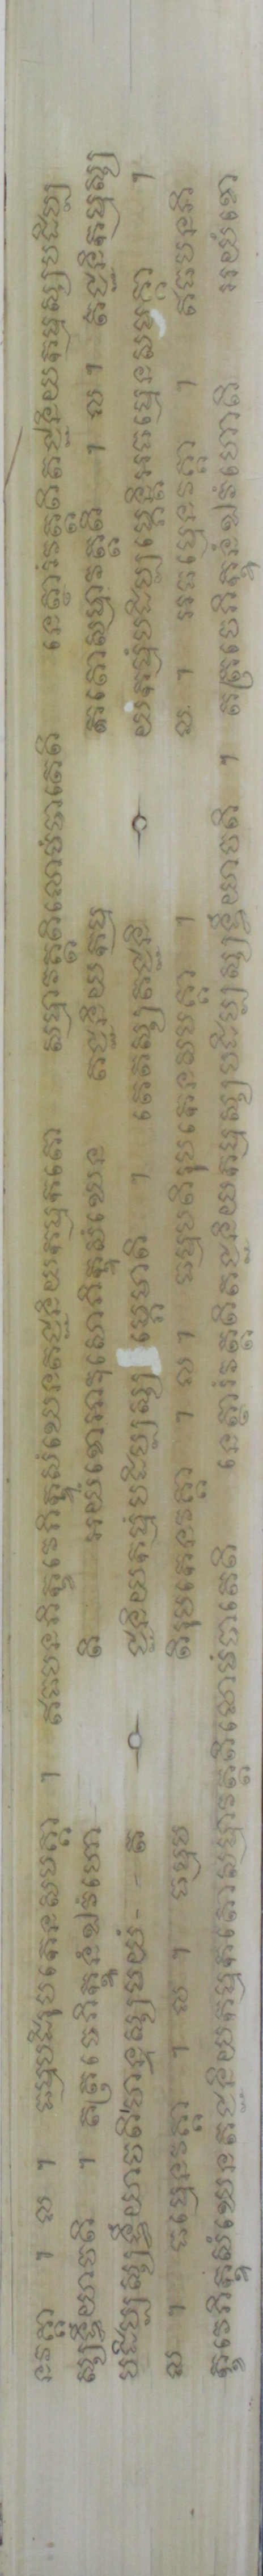 នវគ្គា ។ ល ។ ធម្មបដិរូបកេនសមគ្គា ។ ឥធបនភិក្ខវេភិក្ខុសំឃេនតជ្ជនិយកម្មកតោ សម្មាវត្តតិលោមំបាតេតិ នេត្ថារំវត្តតិតជ្ជនិយកម្មស្សបដិប្ប
ស្សទ្ធិំយាចតិ ។ តត្រចេភិក្ខូនំឯវំហោ តិ អយំខោអាវុសោភិក្ខុសំឃេន តជ្ជនិយកម្ម កតោសម្មាវត្តតិ ។ ល ។ តជ្ជនិកម្មស្ស
បដិប្បស្សទ្ធិំយាចតិហន្ទស្សមយំ - - ត ជ្ជនិយកម្មំបដិប្បស្ស ម្ភេមាតិ ។ តេតស្សតជ្ជនិ យកម្មំបដិប្បម្ភេន្តិអធម្មេនសមគ្គា ។
ល ។ ធម្មេនវគ្គា ។ ល ។ ធម្មប តិរូបកេនវគ្គា ។ ល ។ ធម្មបតិរូបកេនសមគ្គា ។ ល ។ អធម្មេនវគ្គា ។ ឥធបនភិ
ក្ខវេភិក្ខុសំឃេនតជ្ជនិយកម្មកតោសម្មាវត្តតិលោមំបាតេតិ នេត្ថារំវត្តតិតជ្ជនិយកម្មស្សបដិប្បស្សទ្ធិំយាចតិ ។ តត្រចេភិក្ខូនំឯវំហោតិ អយំខោ